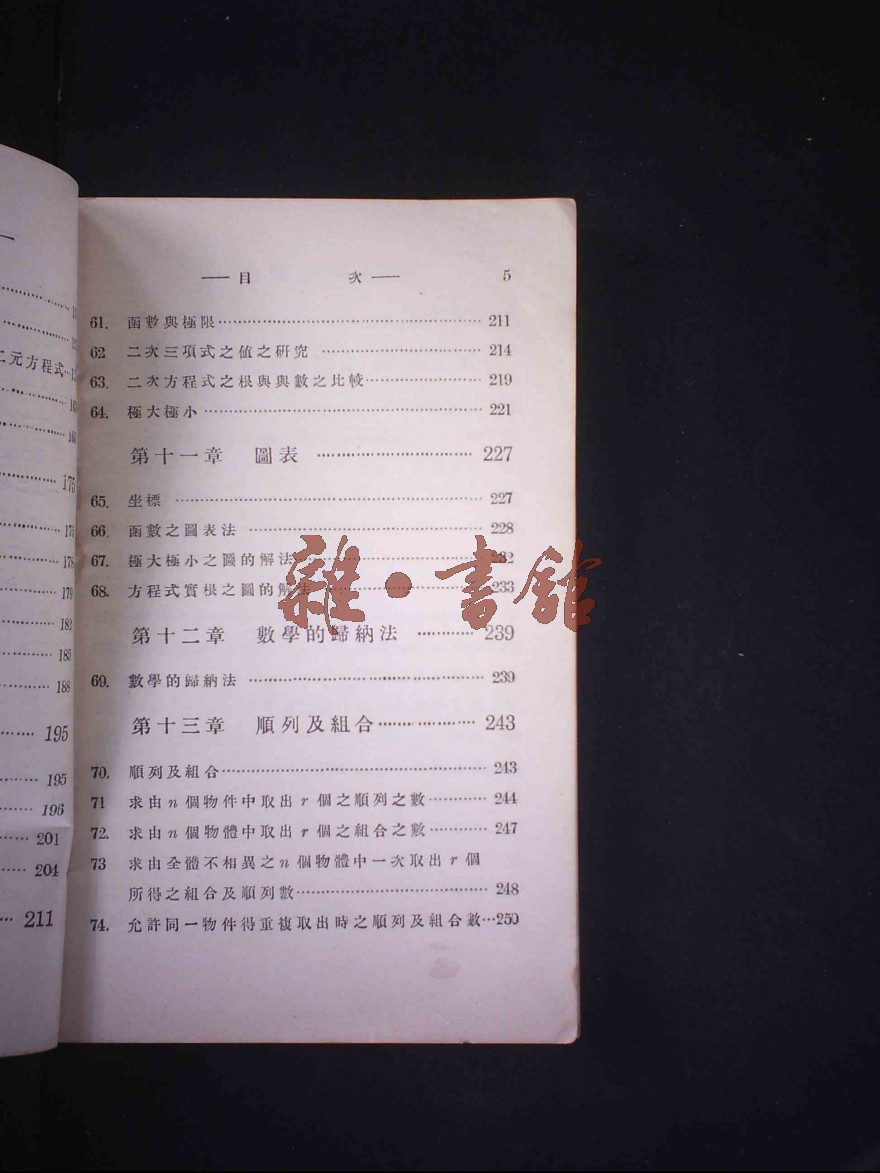 二元方程式
175
178
179
182
185
188
195
195
196
201
204
211
目次 5
61. 函數與極限 211
62 二次三項式之値之研究 214
63. 二次方程式之根與與數之比較 219
64. 極大極小 221
第十一章 圖表 227
65. 坐標 227
66. 函數之圖表法 228
67. 極大極小之圖的解法
68. 方程式實根之圖的解法 233
第十二章 數學的歸納法 239
69. 數學的歸納法 239
第十三章 順列及組合 243
70. 順列及組合 243
71 求由 n 個物件中取出 r 個之順列之數 244
72. 求由 n 個物體中取出 r 個之組合之數 247
73 求由全體不相異之 n 個物體中一次取出 r 個
所得之組合及順列數 248
74. 允許同一物件得重複取出時之順列及組合數 250
雜·書館